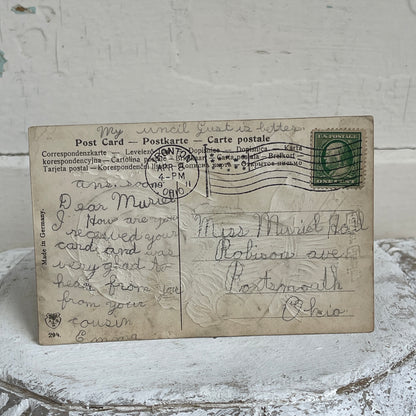 My uncil Gust is better.
Post Card – Postkarte – Carte postale
Correspondenzkarte – Levelező-Lap – Dopisnice – Dopisnica Karta
korespondencyjna – Cartolina postale – Briefkort
Tarjeta postal – Korespondenční lístek
U.S. POSTAGE
APR 8
4-PM
OHIO
ans. soon
Dear Muriel
I How are you
received your
card and was
very glad to
hear from you
from your
cousin
Emma
Miss Muriel
Robison ave
Portsmouth
Ohio
Made in Germany.
294